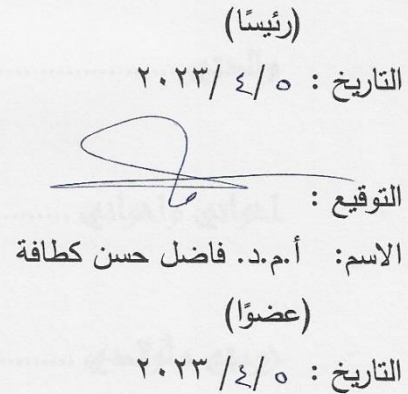 (رئيسًا)
التاريخ : ٥ / ٤ / ٢٠٢٣
التوقيع :
الاسم: أ.م.د. فاضل حسن كطافة
(عضوًا)
التاريخ : ٥ / ٤ / ٢٠٢٣